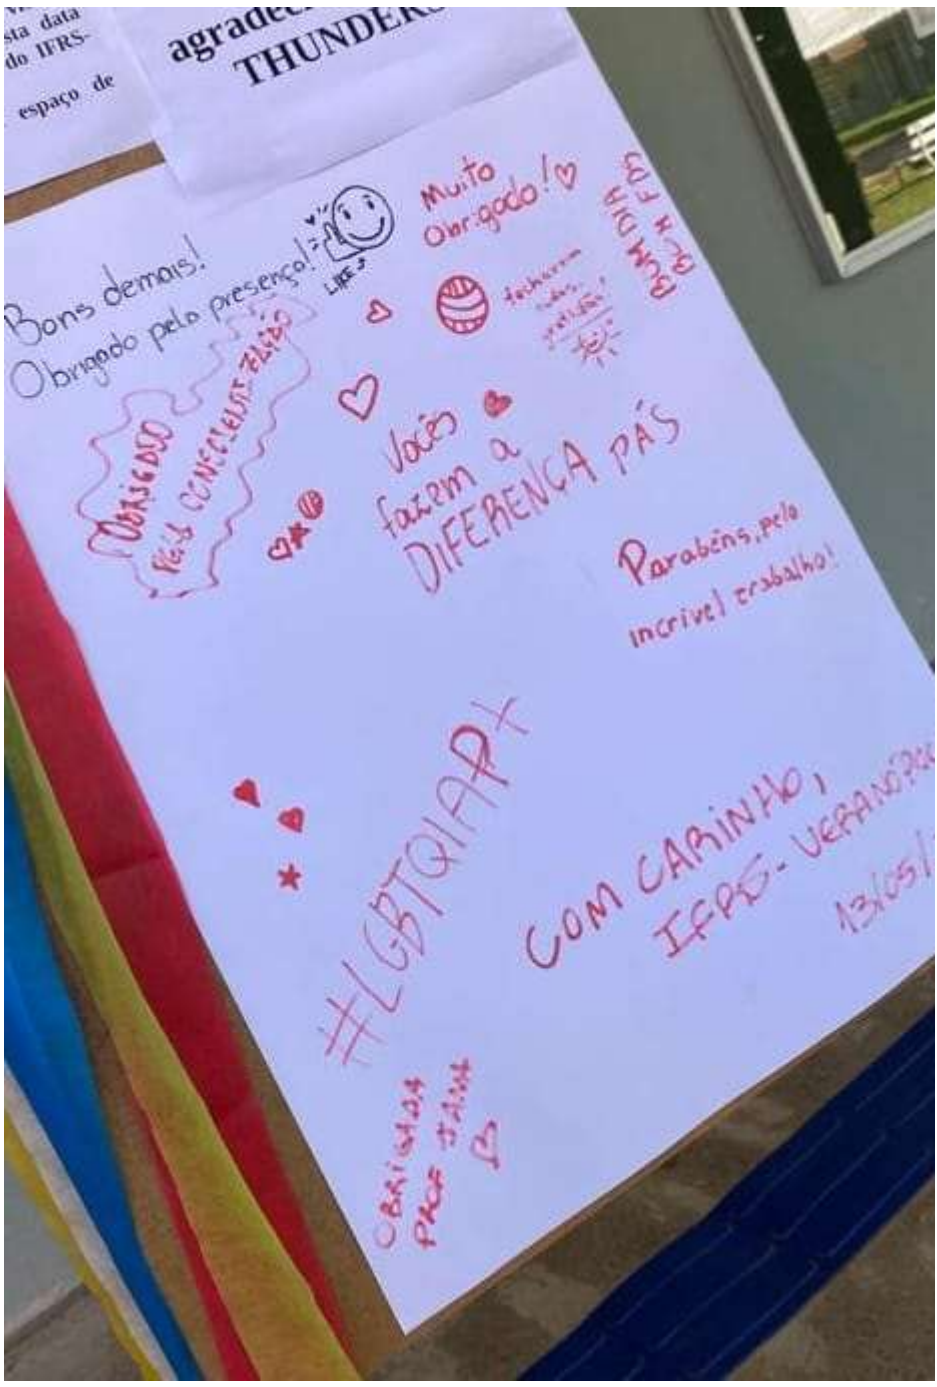 sta data
do IFRS-
espaço de
THUNDERS
Bons demais!
Obrigado pela presença!
LIKE
Muito
Obrigado!
BOM DIA
fecharam
OBRIGADO
PELA CONSCIENTIZAÇÃO
Vocês
fazem a
DIFERENÇA PAS
Parabéns, pelo
incrível trabalho!
#LGBTQIAP+
COM CARINHO,
IFRS-
13/05/
OBRIGADA
PROF JANA